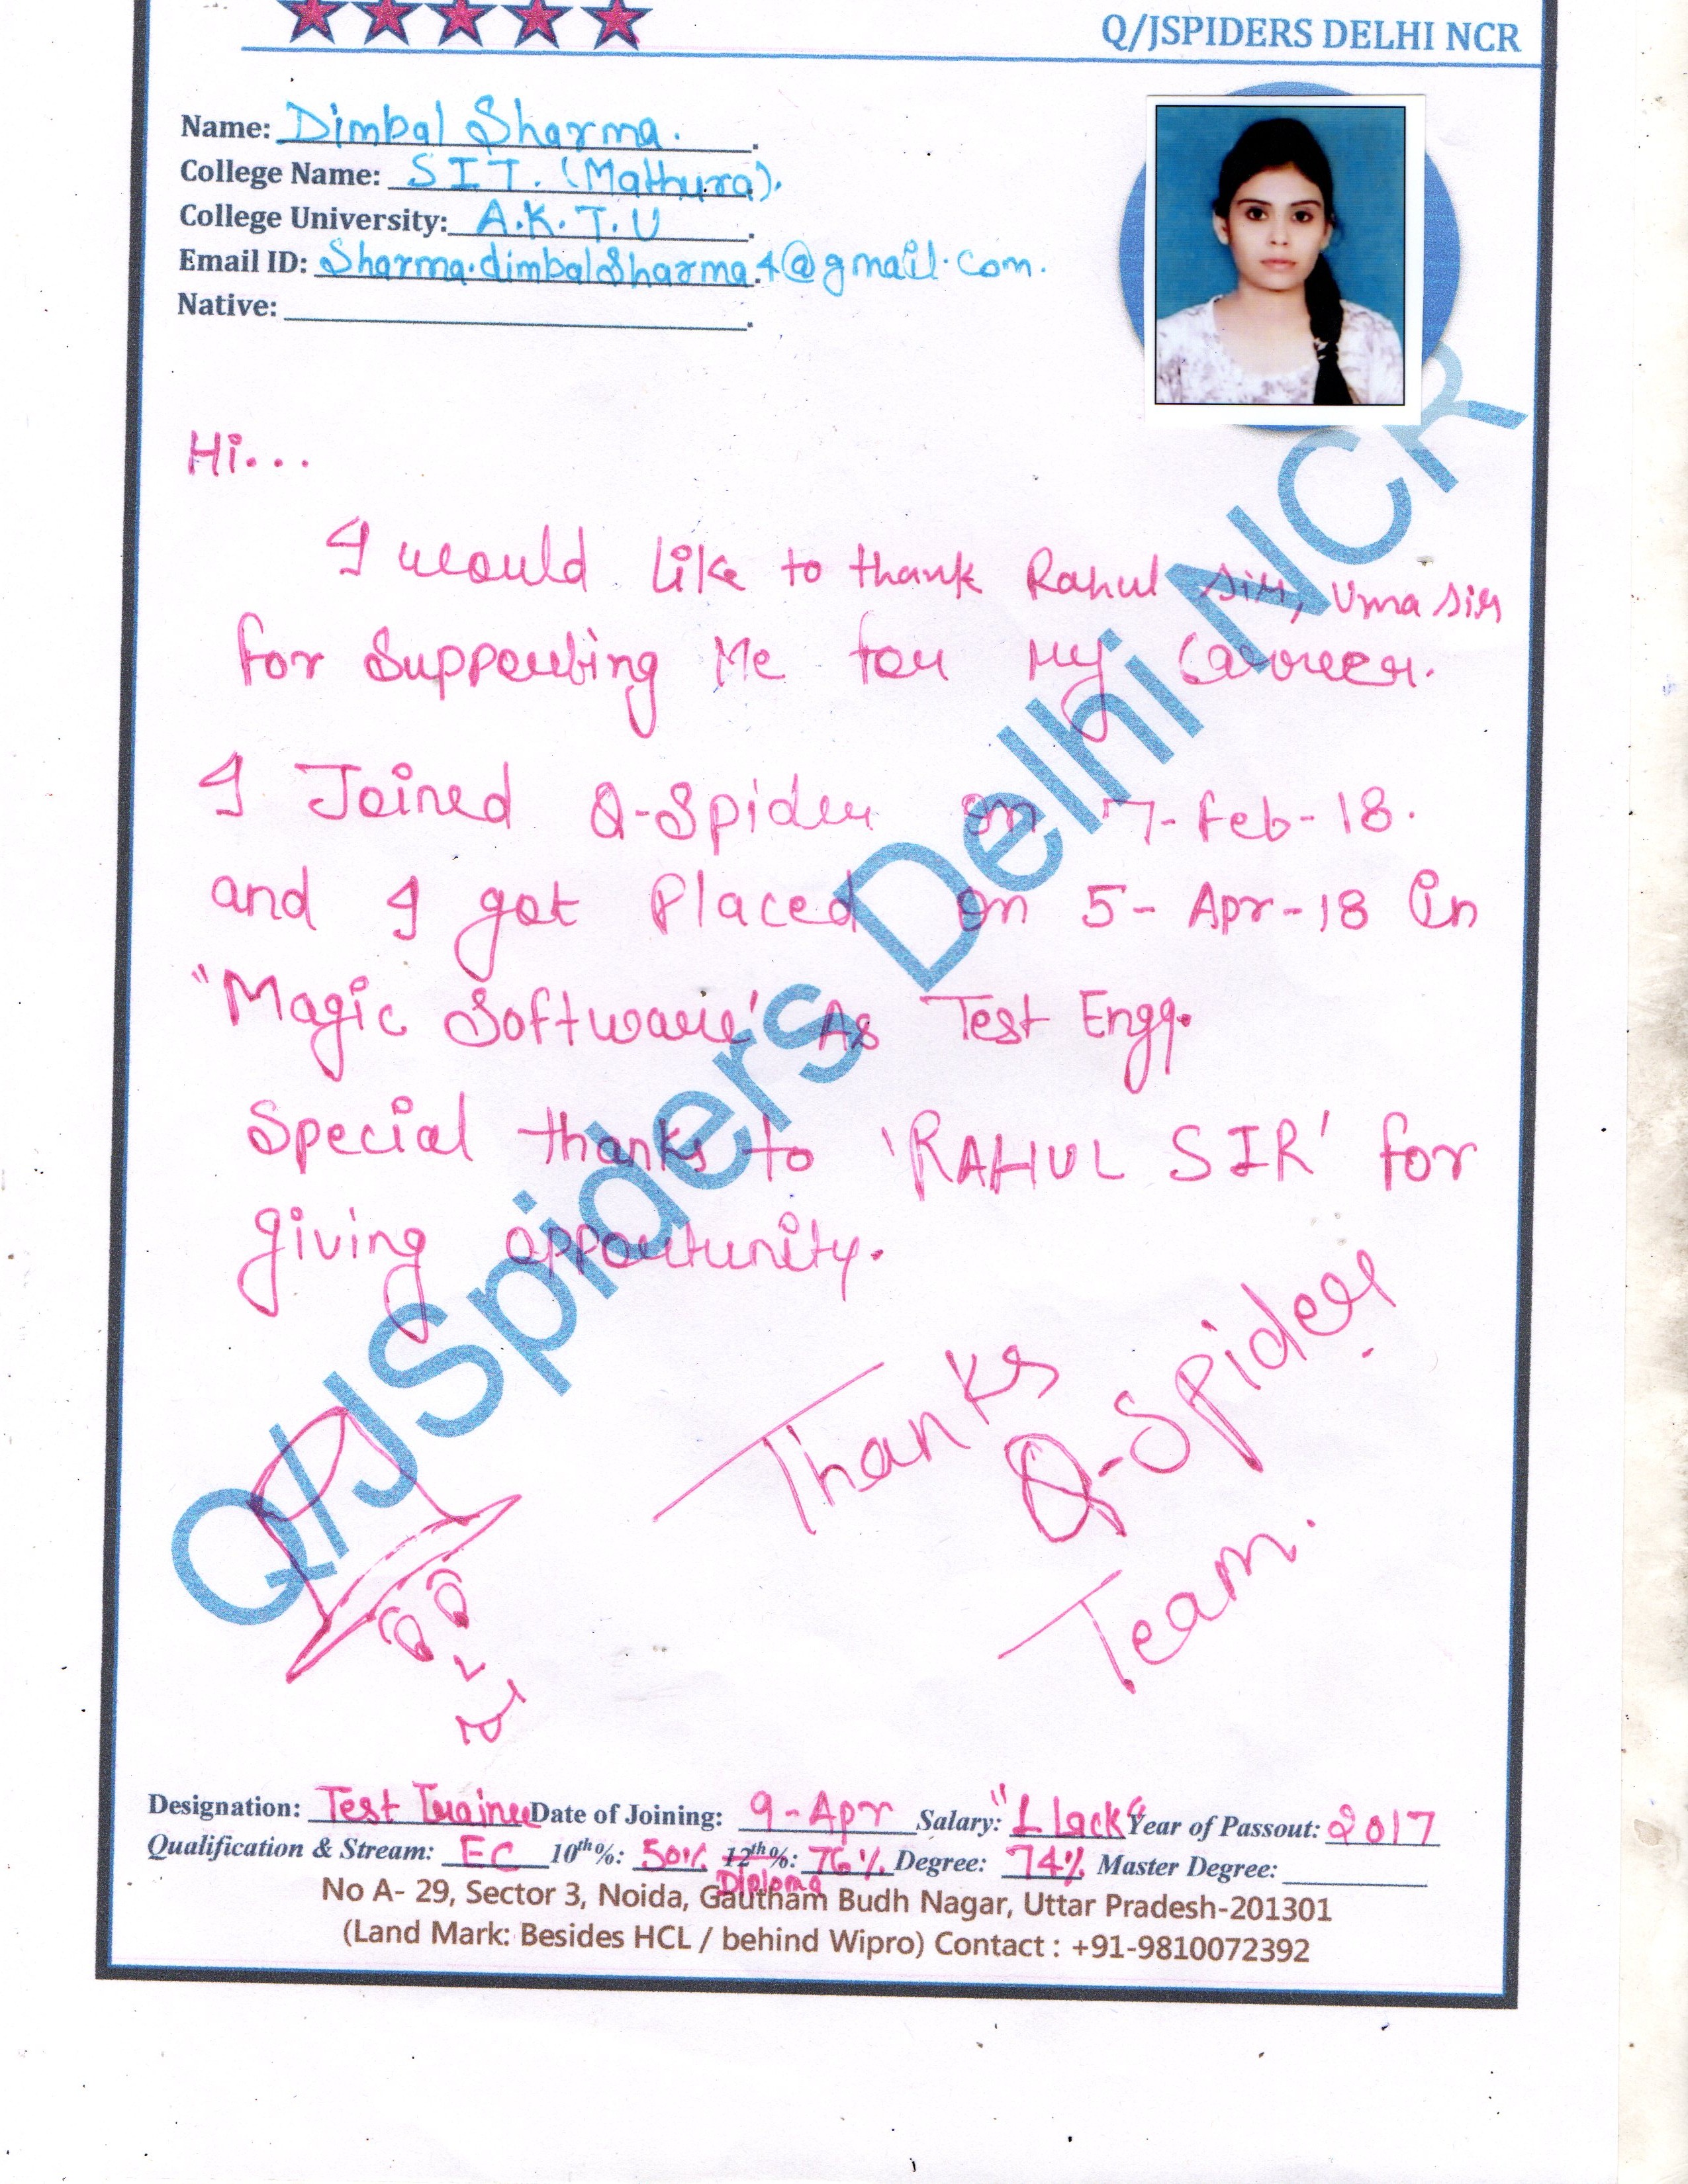 Q/JSPIDERS DELHI NCR
Name: Dimbal Sharma.
College Name: SIT. (Mathura).
College University: A.K.T.U
Email ID: Sharma.dimbalSharma.4@gmail.com.
Native:
Hi...
I would like to thank Rahul sir, Uma sir
for Supporting Me for My Carreer.
I Joined Q-Spider on 7-Feb-18.
and I got Placed on 5-Apr-18 in
"Magic Software' As Test Engg.
Special thanks to 'RAHUL SIR' for
giving opportunity.
Thanks
Q-Spider
Team.
Q/JSpiders Delhi NCR
Designation: Test Trainee Date of Joining: 9-Apr Salary: "1 lack" Year of Passout: 2017
Qualification & Stream: EC 10th%: 50% 12th%: 76% Degree: 74% Master Degree:
Diploma
No A- 29, Sector 3, Noida, Gautham Budh Nagar, Uttar Pradesh-201301
(Land Mark: Besides HCL / behind Wipro) Contact : +91-9810072392